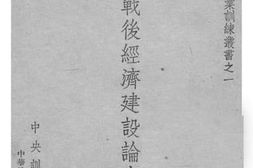 業訓練叢書之一
戰後經濟建設論
中央訓
中華